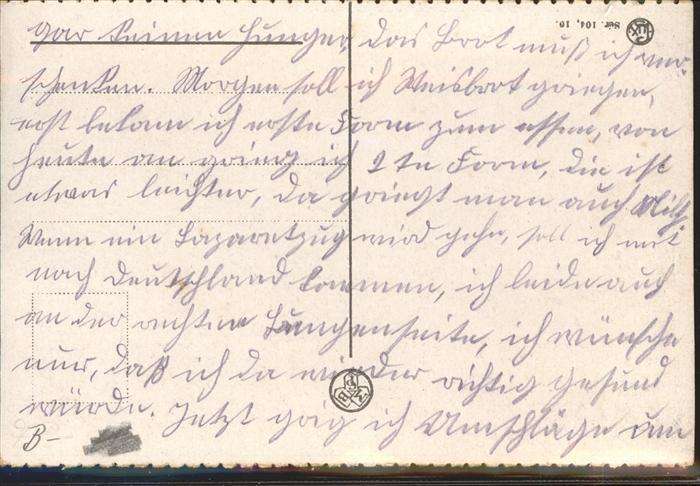 Ser. 104, 10.
gar keinen Hunger, das Brot muß ich ver-
schenken. Morgen soll ich Weisbrot griegen,
erst bekam ich erste Form zum essen, von
heute an grieg ich 2te Form, die ist
etwas leichter, da griegt man auch Milch
Wenn ein Lazaretzug wird gehn, soll ich mit
nach Deutschland kommen, ich leide auch
an der rechten Lungenseite, ich wünsche
nur, daß ich da wieder richtig gesund
würde. Jetzt grig ich Umschläge um
B-